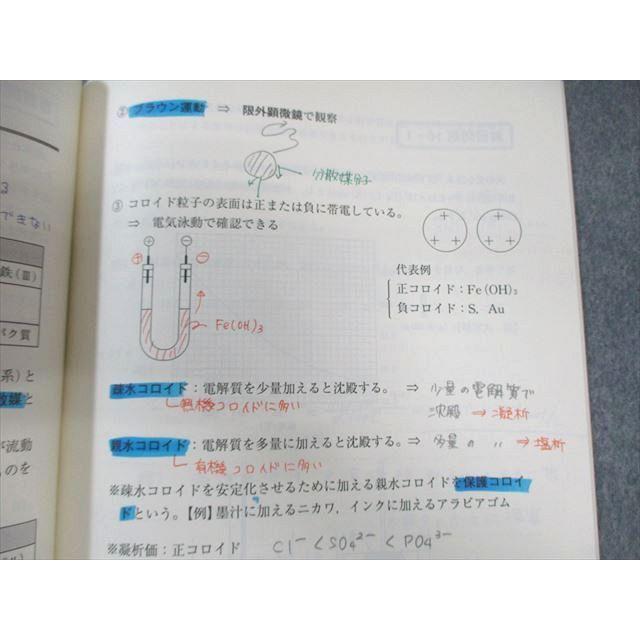 ② ブラウン運動 ⇒ 限外顕微鏡で観察
分散媒分子
③ コロイド粒子の表面は正または負に帯電している。
⇒ 電気泳動で確認できる
+ + + +
+ + + +
⊕ ⊖
代表例
正コロイド：Fe(OH)₃
負コロイド：S, Au
Fe(OH)₃
疎水コロイド：電解質を少量加えると沈殿する。 ⇒ 少量の電解質で
沈殿 → 凝析
無機コロイドに多い
親水コロイド：電解質を多量に加えると沈殿する。⇒ 多量の 〃 → 塩析
有機コロイドに多い
※疎水コロイドを安定化させるために加える親水コロイドを保護コロイ
ドという。【例】墨汁に加えるニカワ，インクに加えるアラビアゴム
※凝析価：正コロイド Cl⁻ < SO₄²⁻ < PO₄³⁻
3
できない
鉄(Ⅲ)
パク質
系）と
散媒と
が流動
ものを